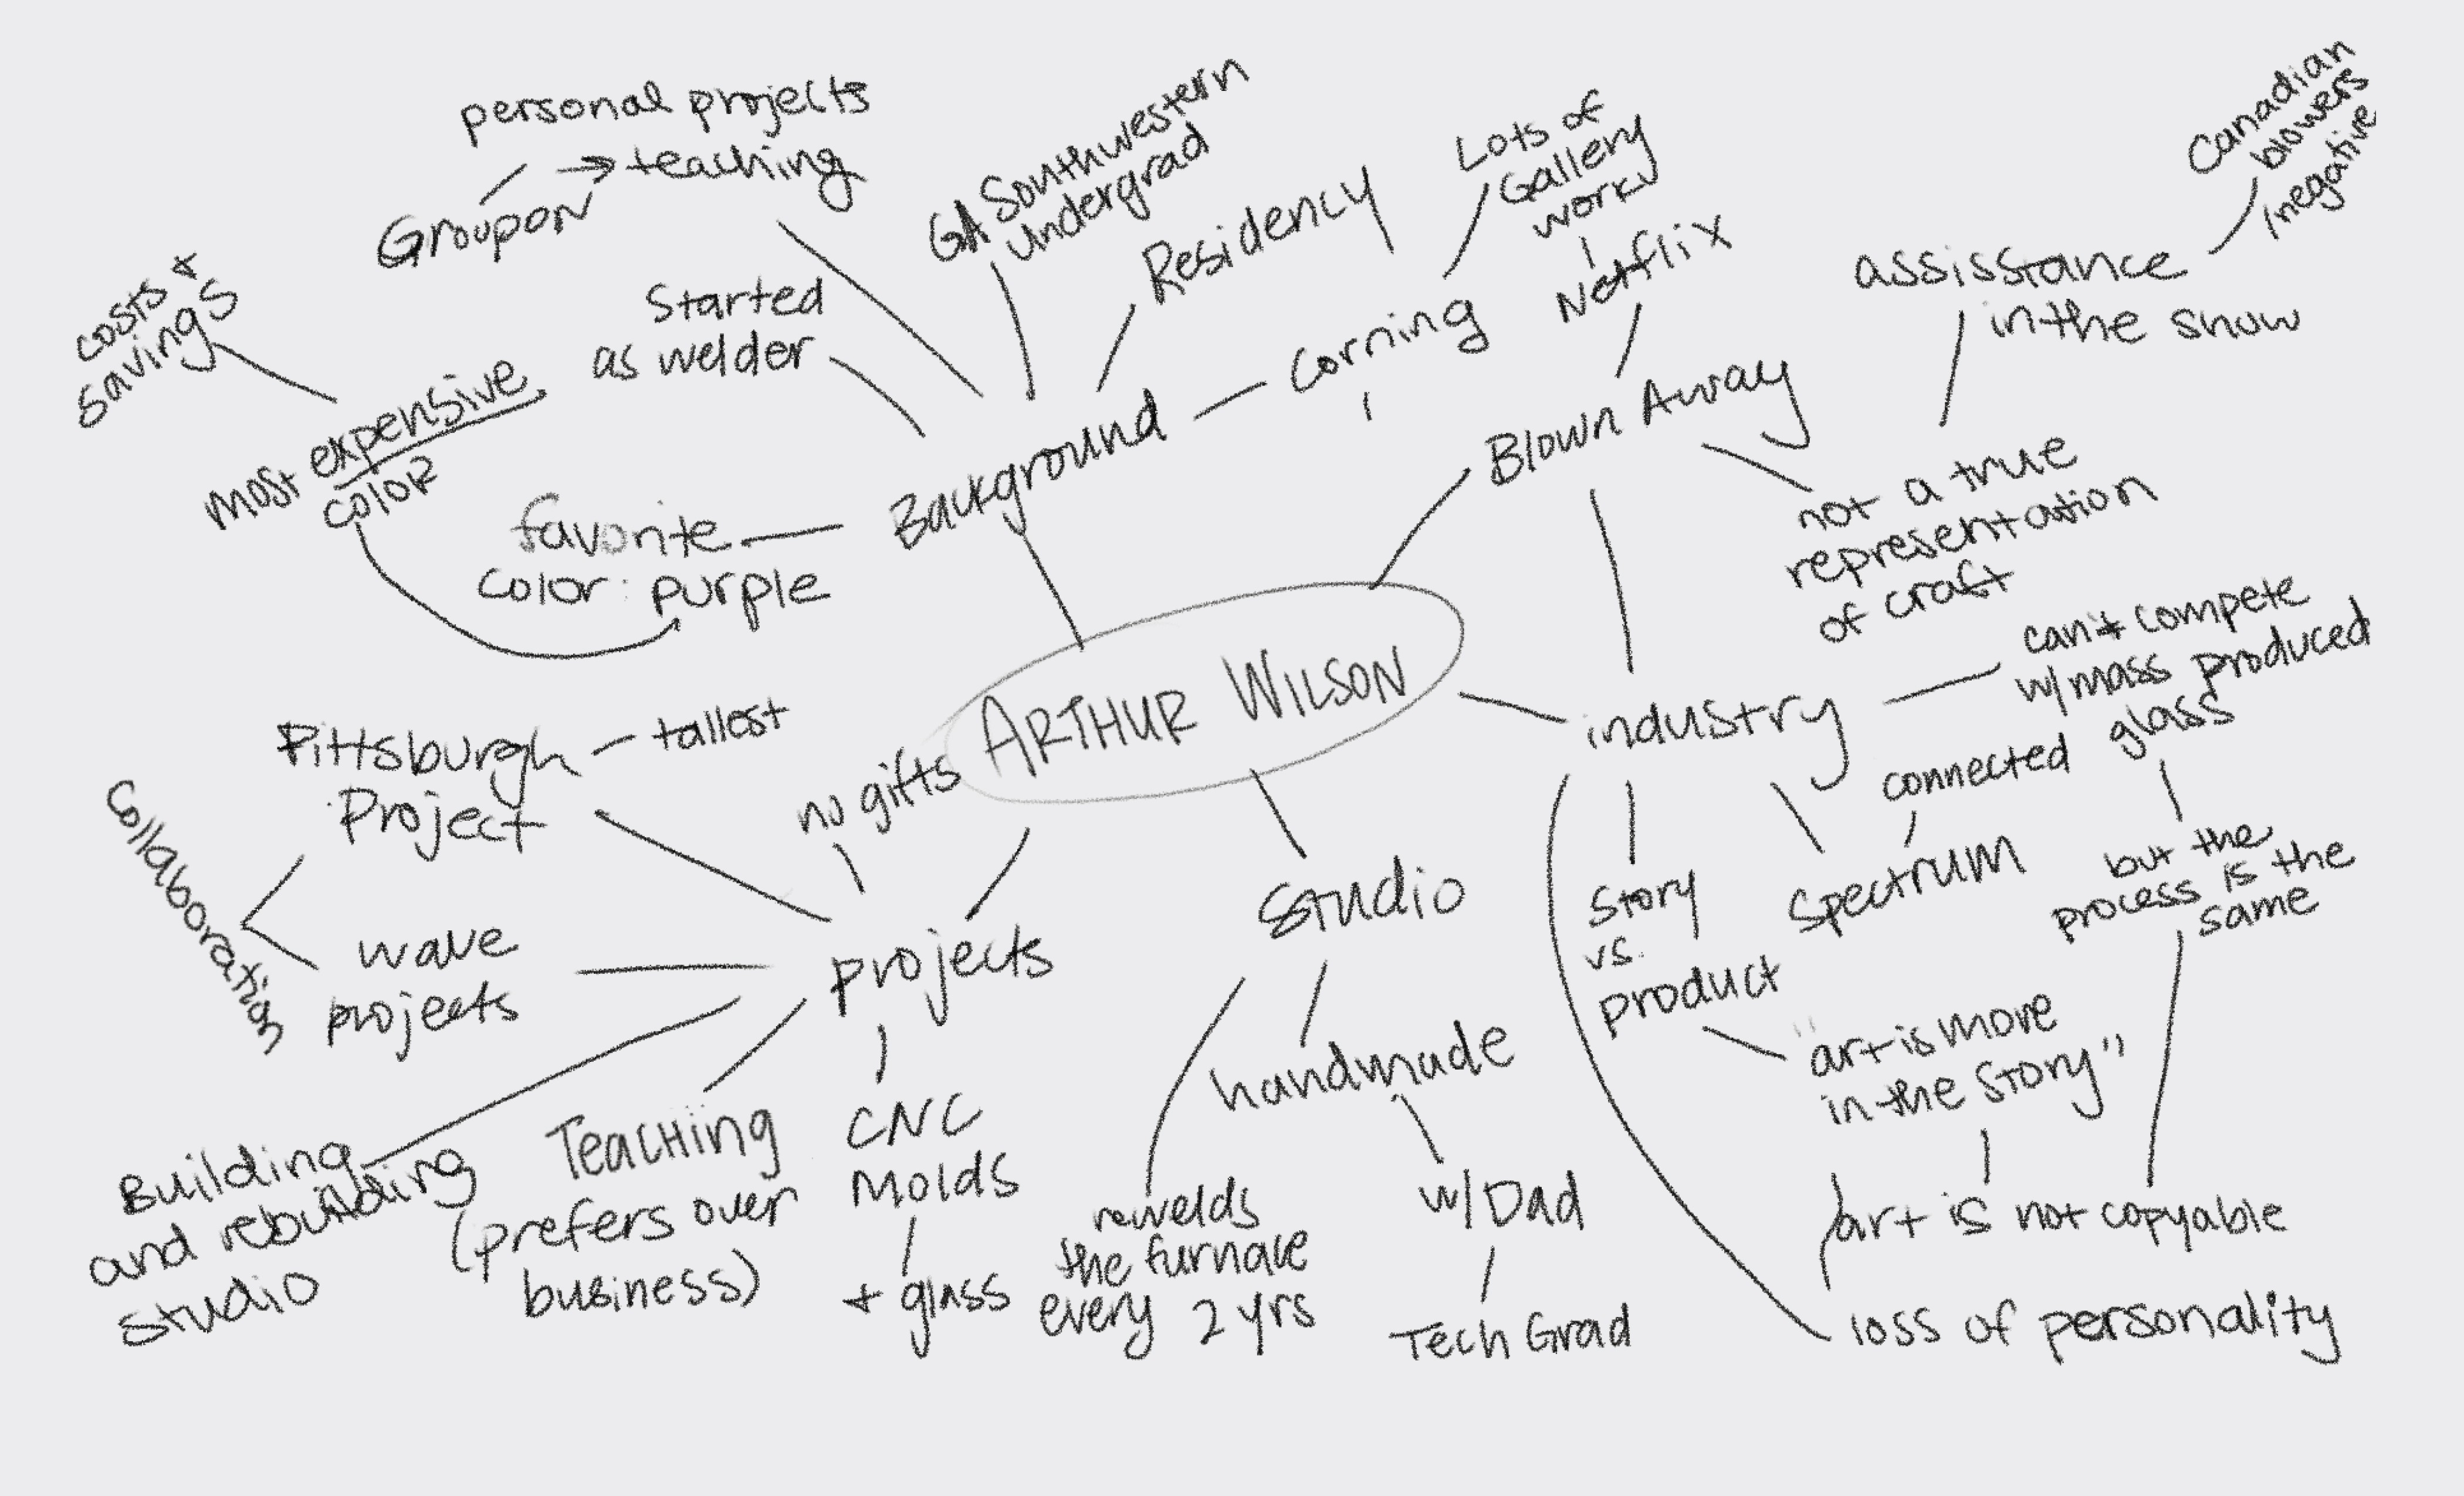 personal projects
→ teaching
Groupon
costs +
savings
most expensive
color
Started
as welder
GA Southwestern
undergrad
Residency
Lots of
Gallery
work
Netflix
Corning
Canadian
blowers
negative
assisstance
in the show
Blown Away
not a true
representation
of craft
Background
favorite
color: purple
ARTHUR WILSON
industry
can't compete
w/ mass produced
glass
but the
process is the
same
connected
Spectrum
Story
vs.
product
"art is more
in the story"
art is not copyable
loss of personality
Pittsburgh
Project
tallest
no gifts
Collaboration
wave
projects
projects
Building
and rebuilding
studio
Teaching
(prefers over
business)
CNC
Molds
+ glass
Studio
handmade
w/ Dad
Tech Grad
rewelds
the furnace
every 2 yrs